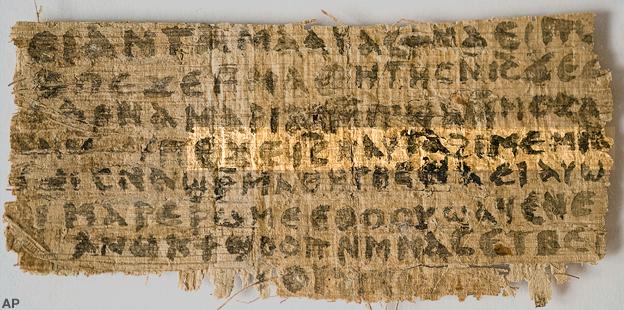 ⲉⲓ ⲁⲛ ⲧⲁⲙⲁⲁⲩ ⲁⲥϯ ⲛⲁⲉⲓ ⲡⲱ
ⲡⲉϫⲉ ⲙⲙⲁⲑⲏⲧⲏⲥ ⲛⲓⲥ ϫⲉ
ⲁⲣⲛⲁ ⲙⲁⲣⲓϩⲁⲙ ⲙⲡϣⲁ ⲙⲙⲟⲥ ⲁ
ⲡⲉϫⲉ ⲓⲥ ⲛⲁⲩ ⲧⲁϩⲓⲙⲉ ⲙⲛ
ⲥⲛⲁϣⲣⲙⲁⲑⲏⲧⲏⲥ ⲛⲁⲉⲓ ⲁⲩⲱ
ⲙⲁⲣⲉⲣⲱⲙⲉ ⲉⲑⲟⲟⲩ ϣⲁϥⲉ ⲛⲉ
ⲁⲛⲟⲕ ϯϣⲟⲟⲡ ⲛⲙⲙⲁⲥ ⲉⲧⲃⲉ
AP